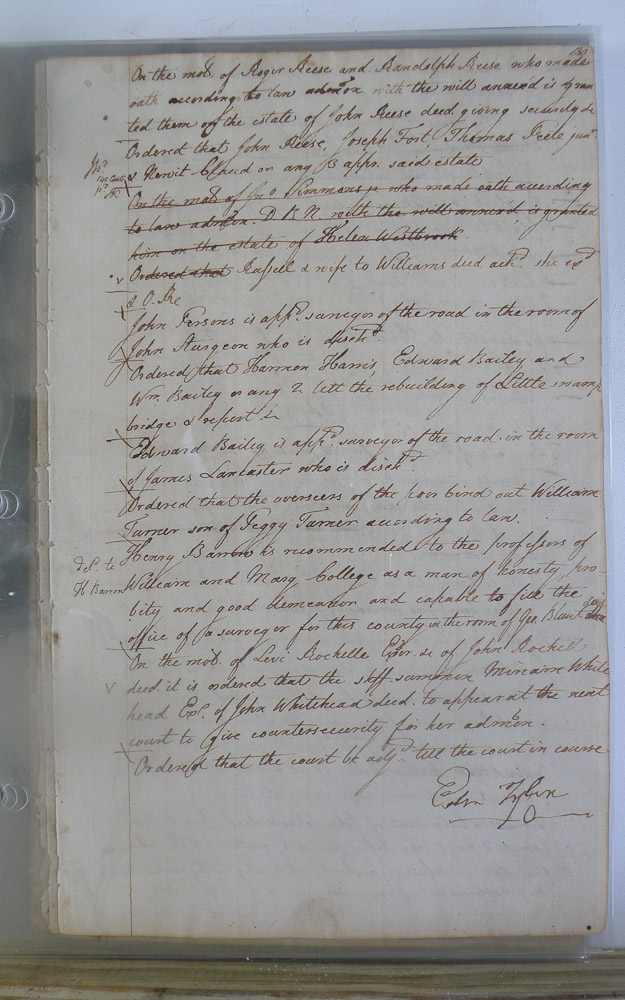 On the mot. of Roger Reese and Randolph Reese who made
oath according to law admon. with the will annex'd is gran
ted them on the estate of John Reese decd. giving security &c
Ordered that John Reese, Joseph Fort, Thomas Peete jun.
& Newit Claud or any 3 appr. said estate
On the mot. of Jno Simmons jr who made oath according
to law admon. D B N with the will annex'd is granted
him on the estate of Helen Westbrook.
Ordered that Russell & wife to Williams deed ackd. she exd
& O. Re
John Persons is appd. surveyor of the road in the room of
John Sturgeon who is dischd.
Ordered that Harmon Harris, Edward Bailey and
Wm. Bailey or any 2 lett the rebuilding of Little swamp
bridge & report &
Edward Bailey is appd. surveyor of the road in the room
of James Lancaster who is dischd.
Ordered that the overseers of the poor bind out William
Turner son of Peggy Turner according to law.
Henry Barron is recommended to the professors of
H Barron
William and Mary College as a man of honesty, pro-
bity and good demeanor and capable to fill the
office of a surveyor for this county in the room of Geo. Blunt
On the mot. of Levi Rochelle Exor. &c of John Rochelle
decd. it is ordered that the shff summon Miriam White
head Exx. of John Whitehead decd. to appear at the next
court to give countersecurity for her admon.
Ordered that the court be adjd. till the court in course